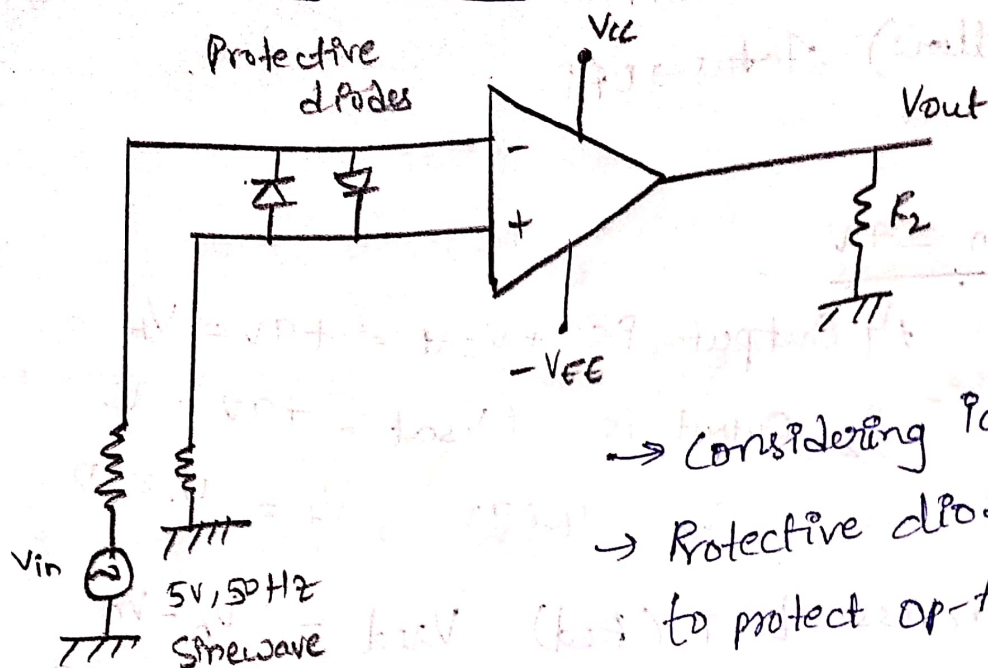 Protective
diodes
Vcc
Vout
-
+
R2
-VEE
Vin
5V, 50HZ
Sinewave
→ Considering
→ Protective
to protect